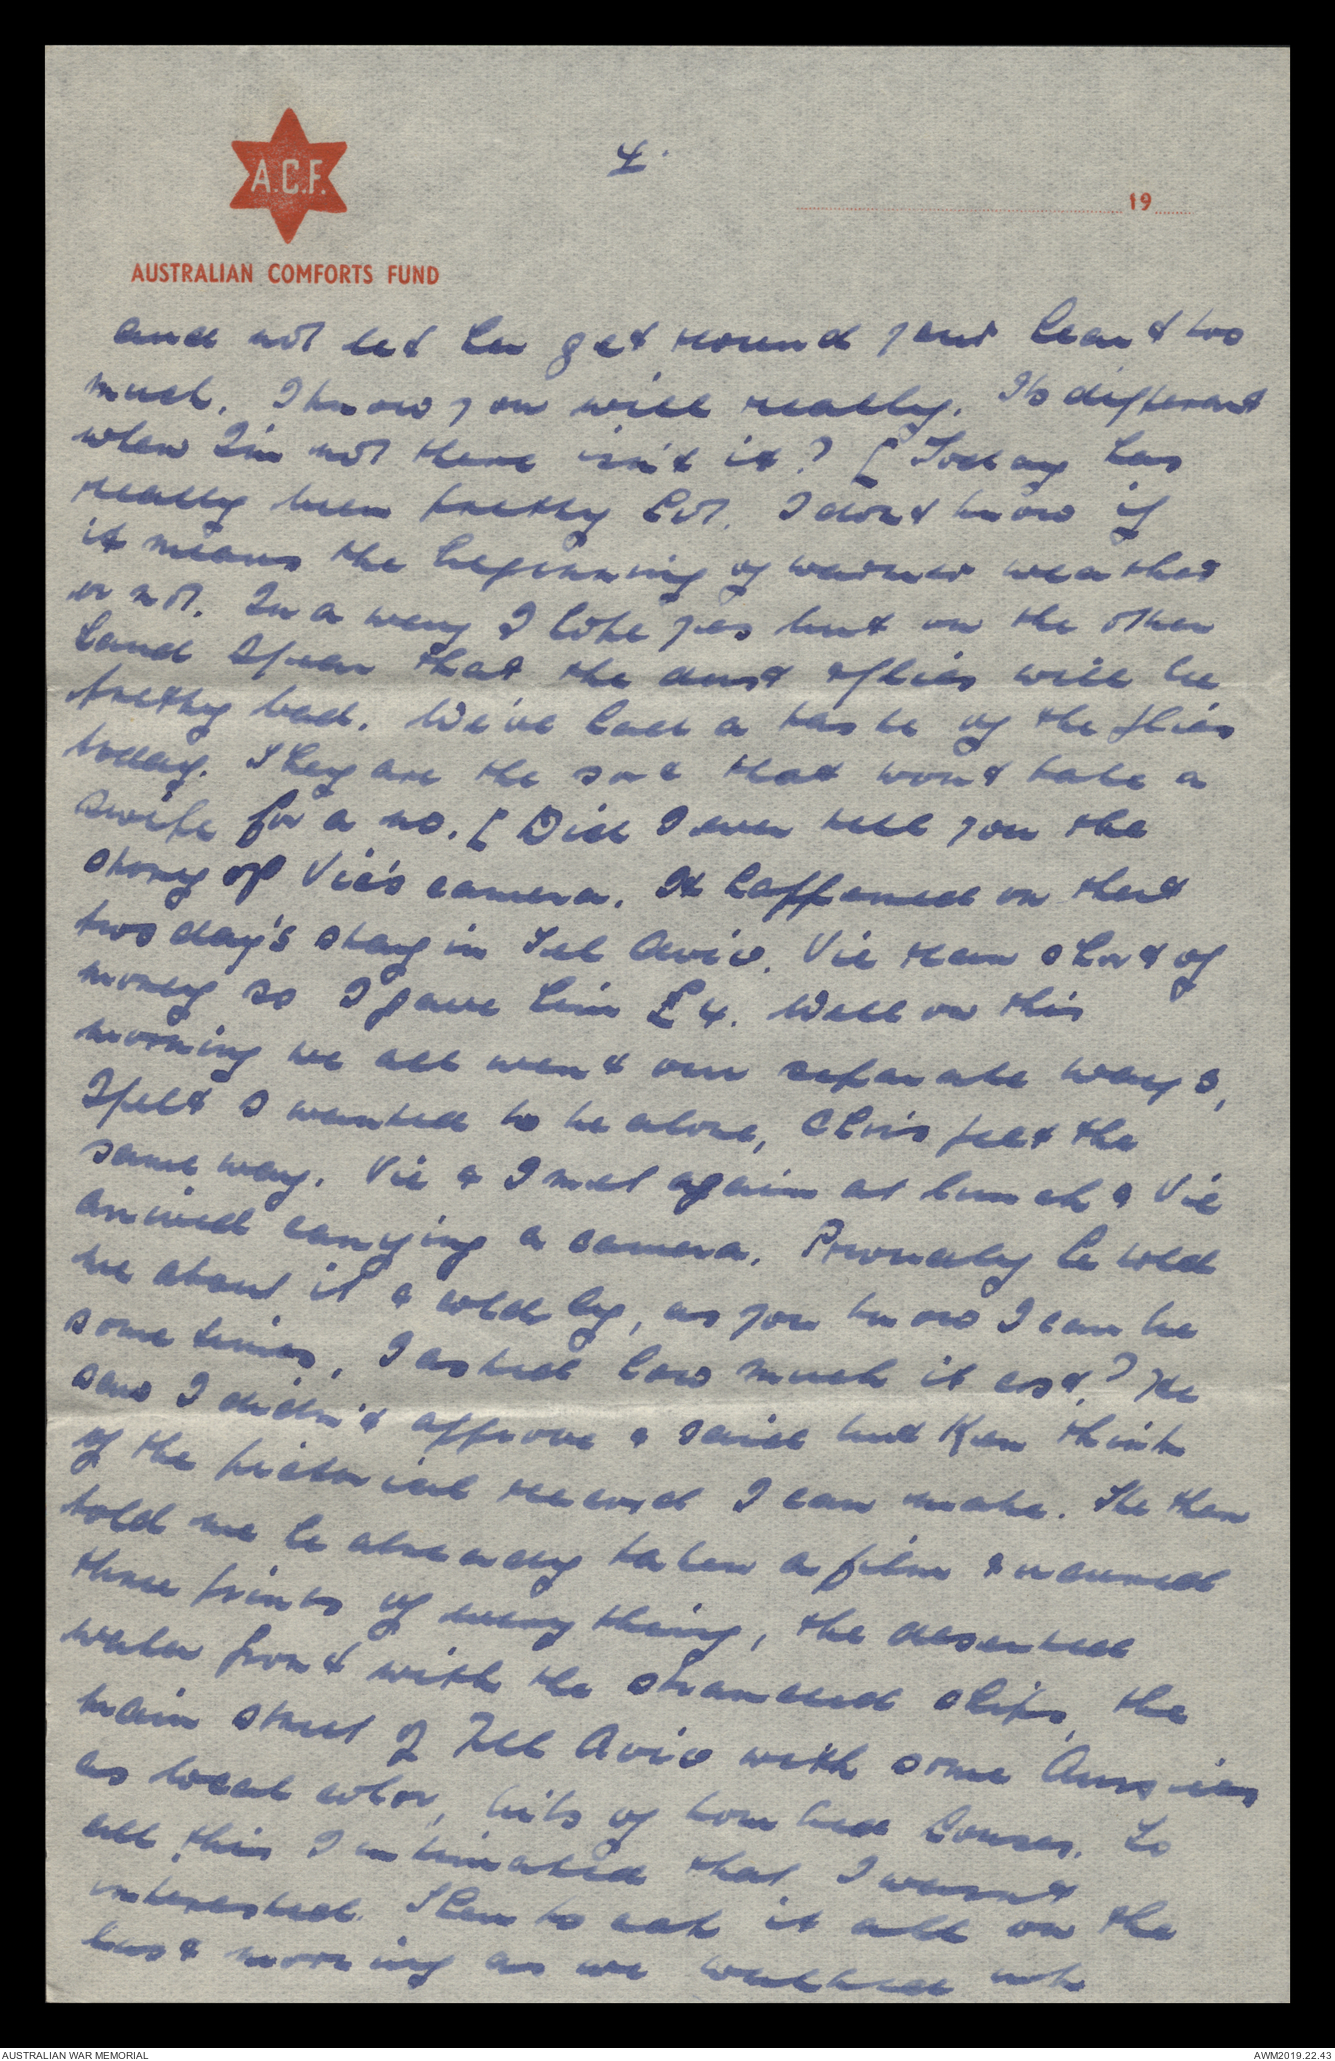 A.C.F.
AUSTRALIAN COMFORTS FUND
4.
19
and not let her get round your heart too
much. I know you will really. Its different
when I'm not there isn't it? [Today has
really been pretty hot. I don't know if
it means the beginning of warmer weather
or not. In a way I hope yes but on the other
hand I fear that the dust & flies will be
pretty bad. We've had a taste of the flies
today. They are the sort that won't take a
swipe for a no. [Did I ever tell you the
story of Vic's camera. It happened on that
two day's stay in Tel Aviv. Vic ran short of
money so I gave him £4. Well on this
morning we all went our separate ways,
I felt I wanted to be alone, Chris felt the
same way. Vic & I met again at lunch & Vic
arrived carrying a camera. Proudly he told
me about it & coldly, as you know I can be
sometimes, I asked how much it cost? He
saw I didn't approve & said but Ken think
of the pictorial record I can make. He then
told me he already taken a film & ordered
three prints of everything, the deserted
water front with the stranded ships, the
main street of Tel Aviv with some Aussies
as local color, bits of bombed houses. To
all this I intimated that I wasn't
interested. Then to cap it all on the
last morning as we walked